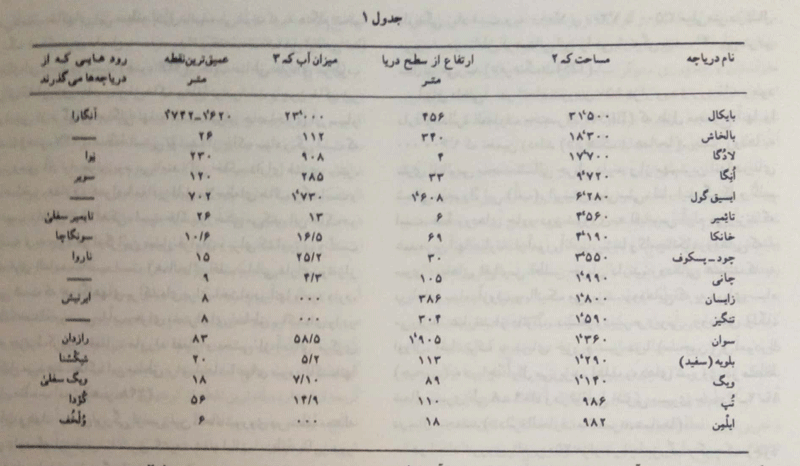 جدول ۱
نام دریاچه مساحت که ۲ ارتفاع از سطح دریا متر میزان آب که ۳ عمیق‌ترین نقطه متر رود هایی که از دریاچه‌ها می‌گذرند
بایکال ۳۱٬۵۰۰ ۴۵۶ ۲۳٬۰۰۰ ۱٬۷۴۲–۱٬۶۲۰ آنگارا
بالخاش ۱۸٬۳۰۰ ۳۴۰ ۱۱۲ ۲۶ —
لادُگا ۱۷٬۷۰۰ ۴ ۹۰۸ ۲۳۰ نِوا
اُنِگا ۹٬۷۲۰ ۳۳ ۲۸۵ ۱۲۰ سویر
ایسیق گول ۶٬۲۸۰ ۱٬۶۰۸ ۱٬۷۳۰ ۷۰۲ —
تایمیر ۴٬۵۶۰ ۶ ۱۳ ۲۶ تایمیر سفلیٰ
خانکا ۴٬۱۹۰ ۶۹ ۱۶/۵ ۱۰/۶ سونگاچا
چود–پسکوف ۳٬۵۵۰ ۳۰ ۲۵/۲ ۱۵ ناروا
چانی ۱٬۹۹۰ ۱۰۵ ۴/۳ ۹ —
زایسان ۱٬۸۰۰ ۳۸۶ ۰۰۰ ۸ ایرتیش
تنگیز ۱٬۵۹۰ ۳۰۴ ۰۰۰ ۸ —
سوان ۱٬۳۶۰ ۱٬۹۰۵ ۵۸/۵ ۸۳ رازدان
بلویه (سفید) ۱٬۲۹۰ ۱۱۳ ۵/۲ ۲۰ شِکْسْنا
ویگ ۱٬۱۴۰ ۸۹ ۷/۱۰ ۱۸ ویگ سفلیٰ
تُپ ۹۸۶ ۱۱۰ ۱۴/۹ ۵۶ کُوْدا
ایلْمِن ۹۸۲ ۱۸ ۰۰۰ ۶ وُلْخُف